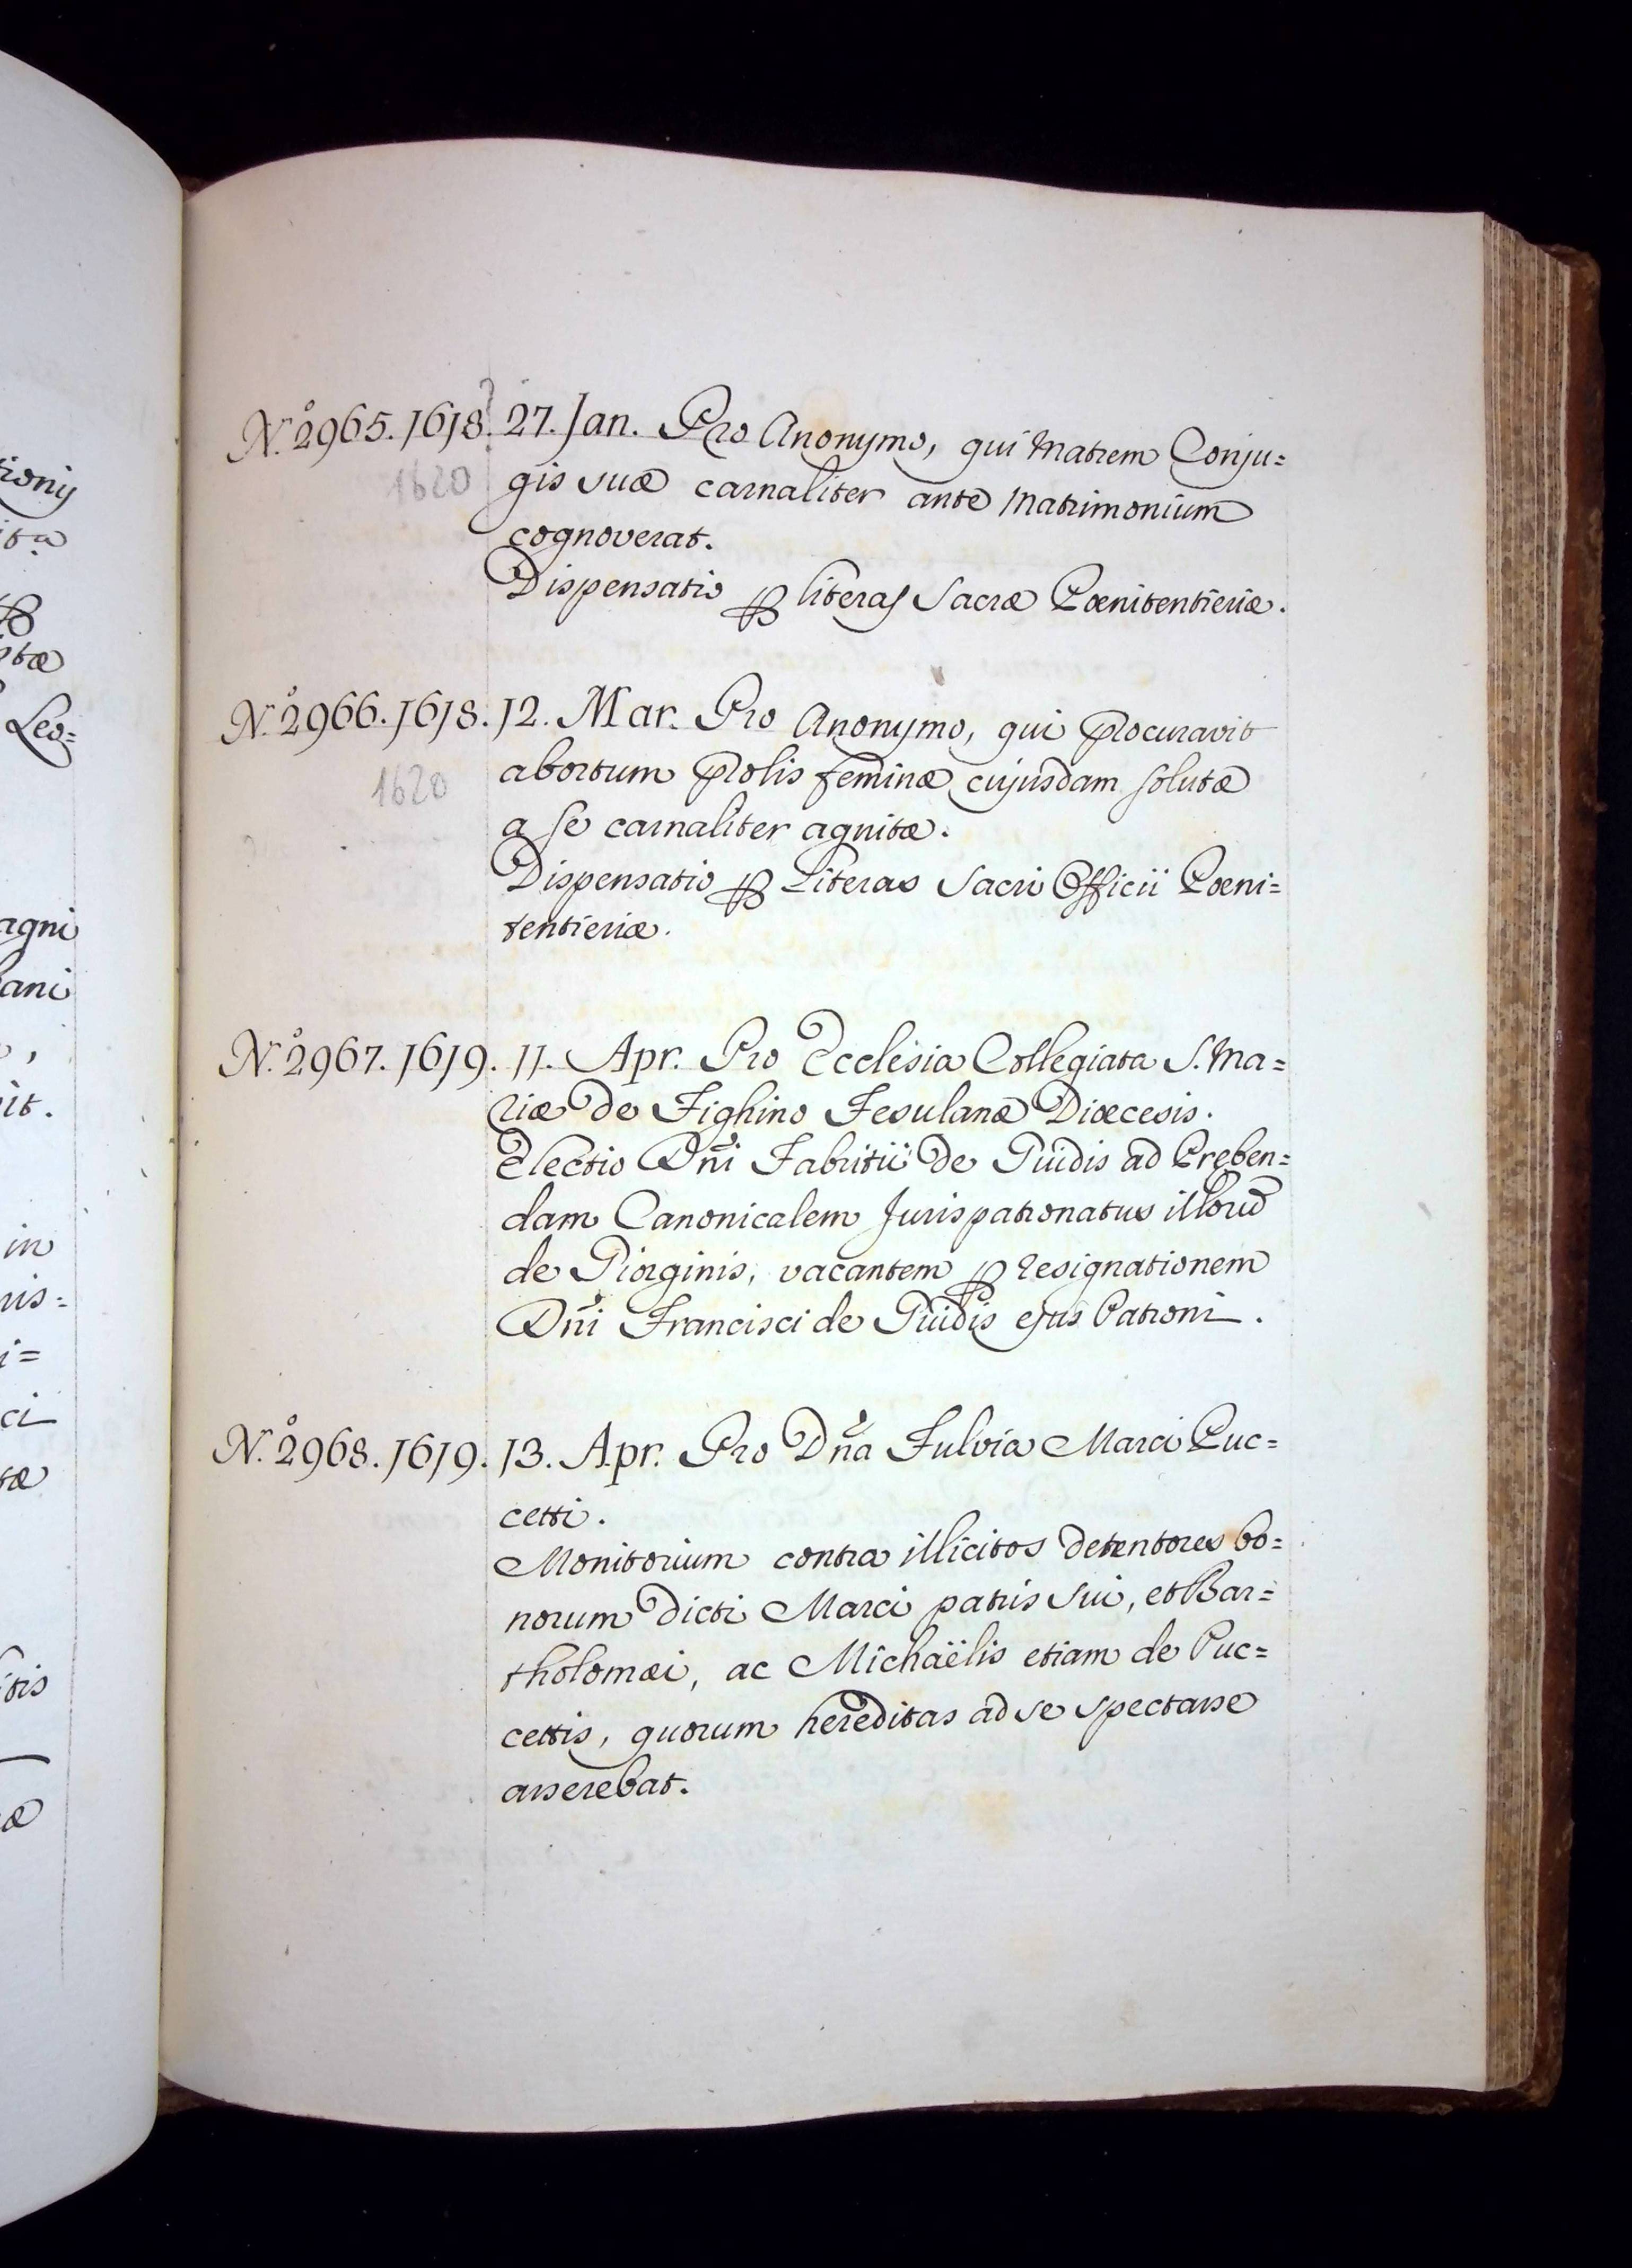 ionij
Leo=
agni
ani
it.
in
ris=
i=
ci
tæ
itis
æ
N.º 2965. 1618. 27. Jan. Pro Anonymo, qui Matrem Conju=
1620
gis suæ carnaliter ante Matrimonium
cognoverat.
Dispensatio ꝑ literas Sacræ Pœnitentieriæ.
N.º 2966. 1618. 12. Mar. Pro Anonymo, qui procuravit
1620
abortum Prolis feminæ cujusdam solutæ
a se carnaliter agnitæ.
Dispensatio ꝑ Literas Sacri Officii Pœni=
tentieriæ.
N.º 2967. 1619. 11. Apr. Pro Ecclesia Collegiata S. Ma=
riæ de Fighino Fesulanæ Diœcesis.
Electio Dñi Fabritii de Guidis ad Pręben=
dam Canonicalem Jurispatronatus illorū
de Giorginis, vacantem ꝑ resignationem
Dñi Francisci de Guidis ejus Patroni.
N.º 2968. 1619. 13. Apr. Pro Dña Fulvia Marci Puc=
cetti.
Monitorium contra illicitos detentores bo=
norum dicti Marci patris sui, et Bar=
tholomæi, ac Michaëlis etiam de Puc=
cettis, quorum hereditas ad se spectasse
asserebat.